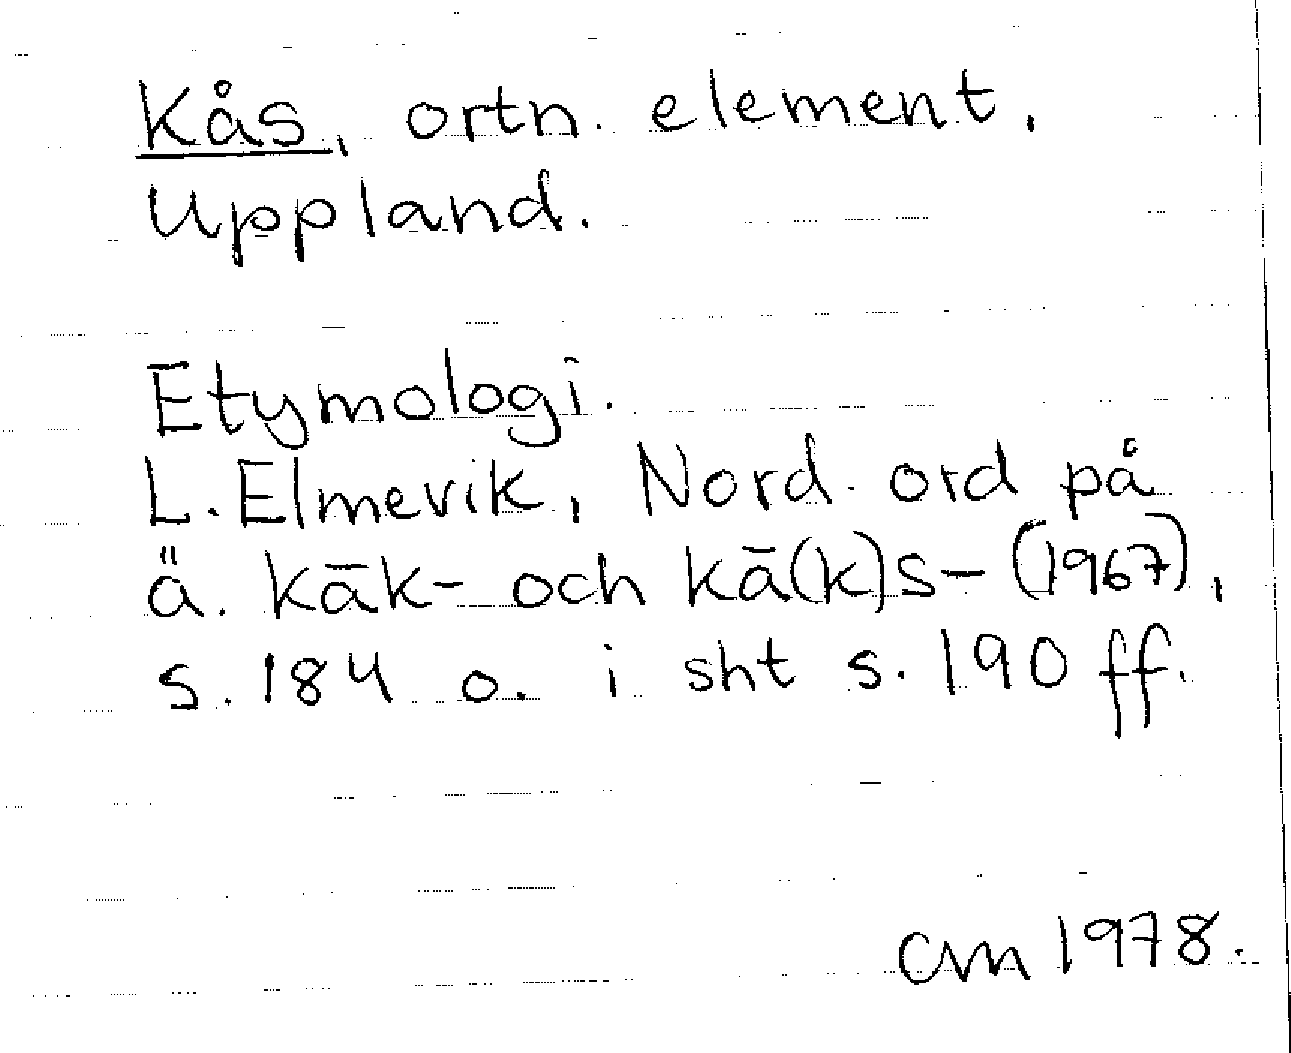 Kås, ortn. element,
Uppland.
Etymologi.
L. Elmevik, Nord. ord på
ä. kāk- och kā(k)s- (1967),
s. 184 o. i sht s. 190 ff.
CM 1978.